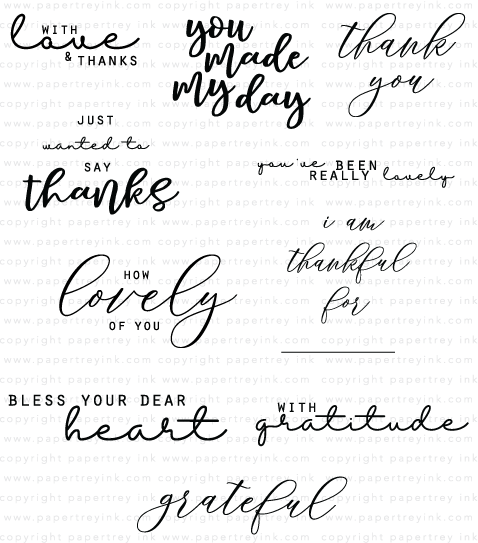 WITH
love
& THANKS
you
made
my day
thank
you
JUST
wanted to
SAY
thanks
you've BEEN
REALLY lovely
i am
thankful
for
HOW
lovely
OF YOU
BLESS YOUR DEAR
heart
WITH
gratitude
grateful
www.papertreyink.com copyright papertrey ink